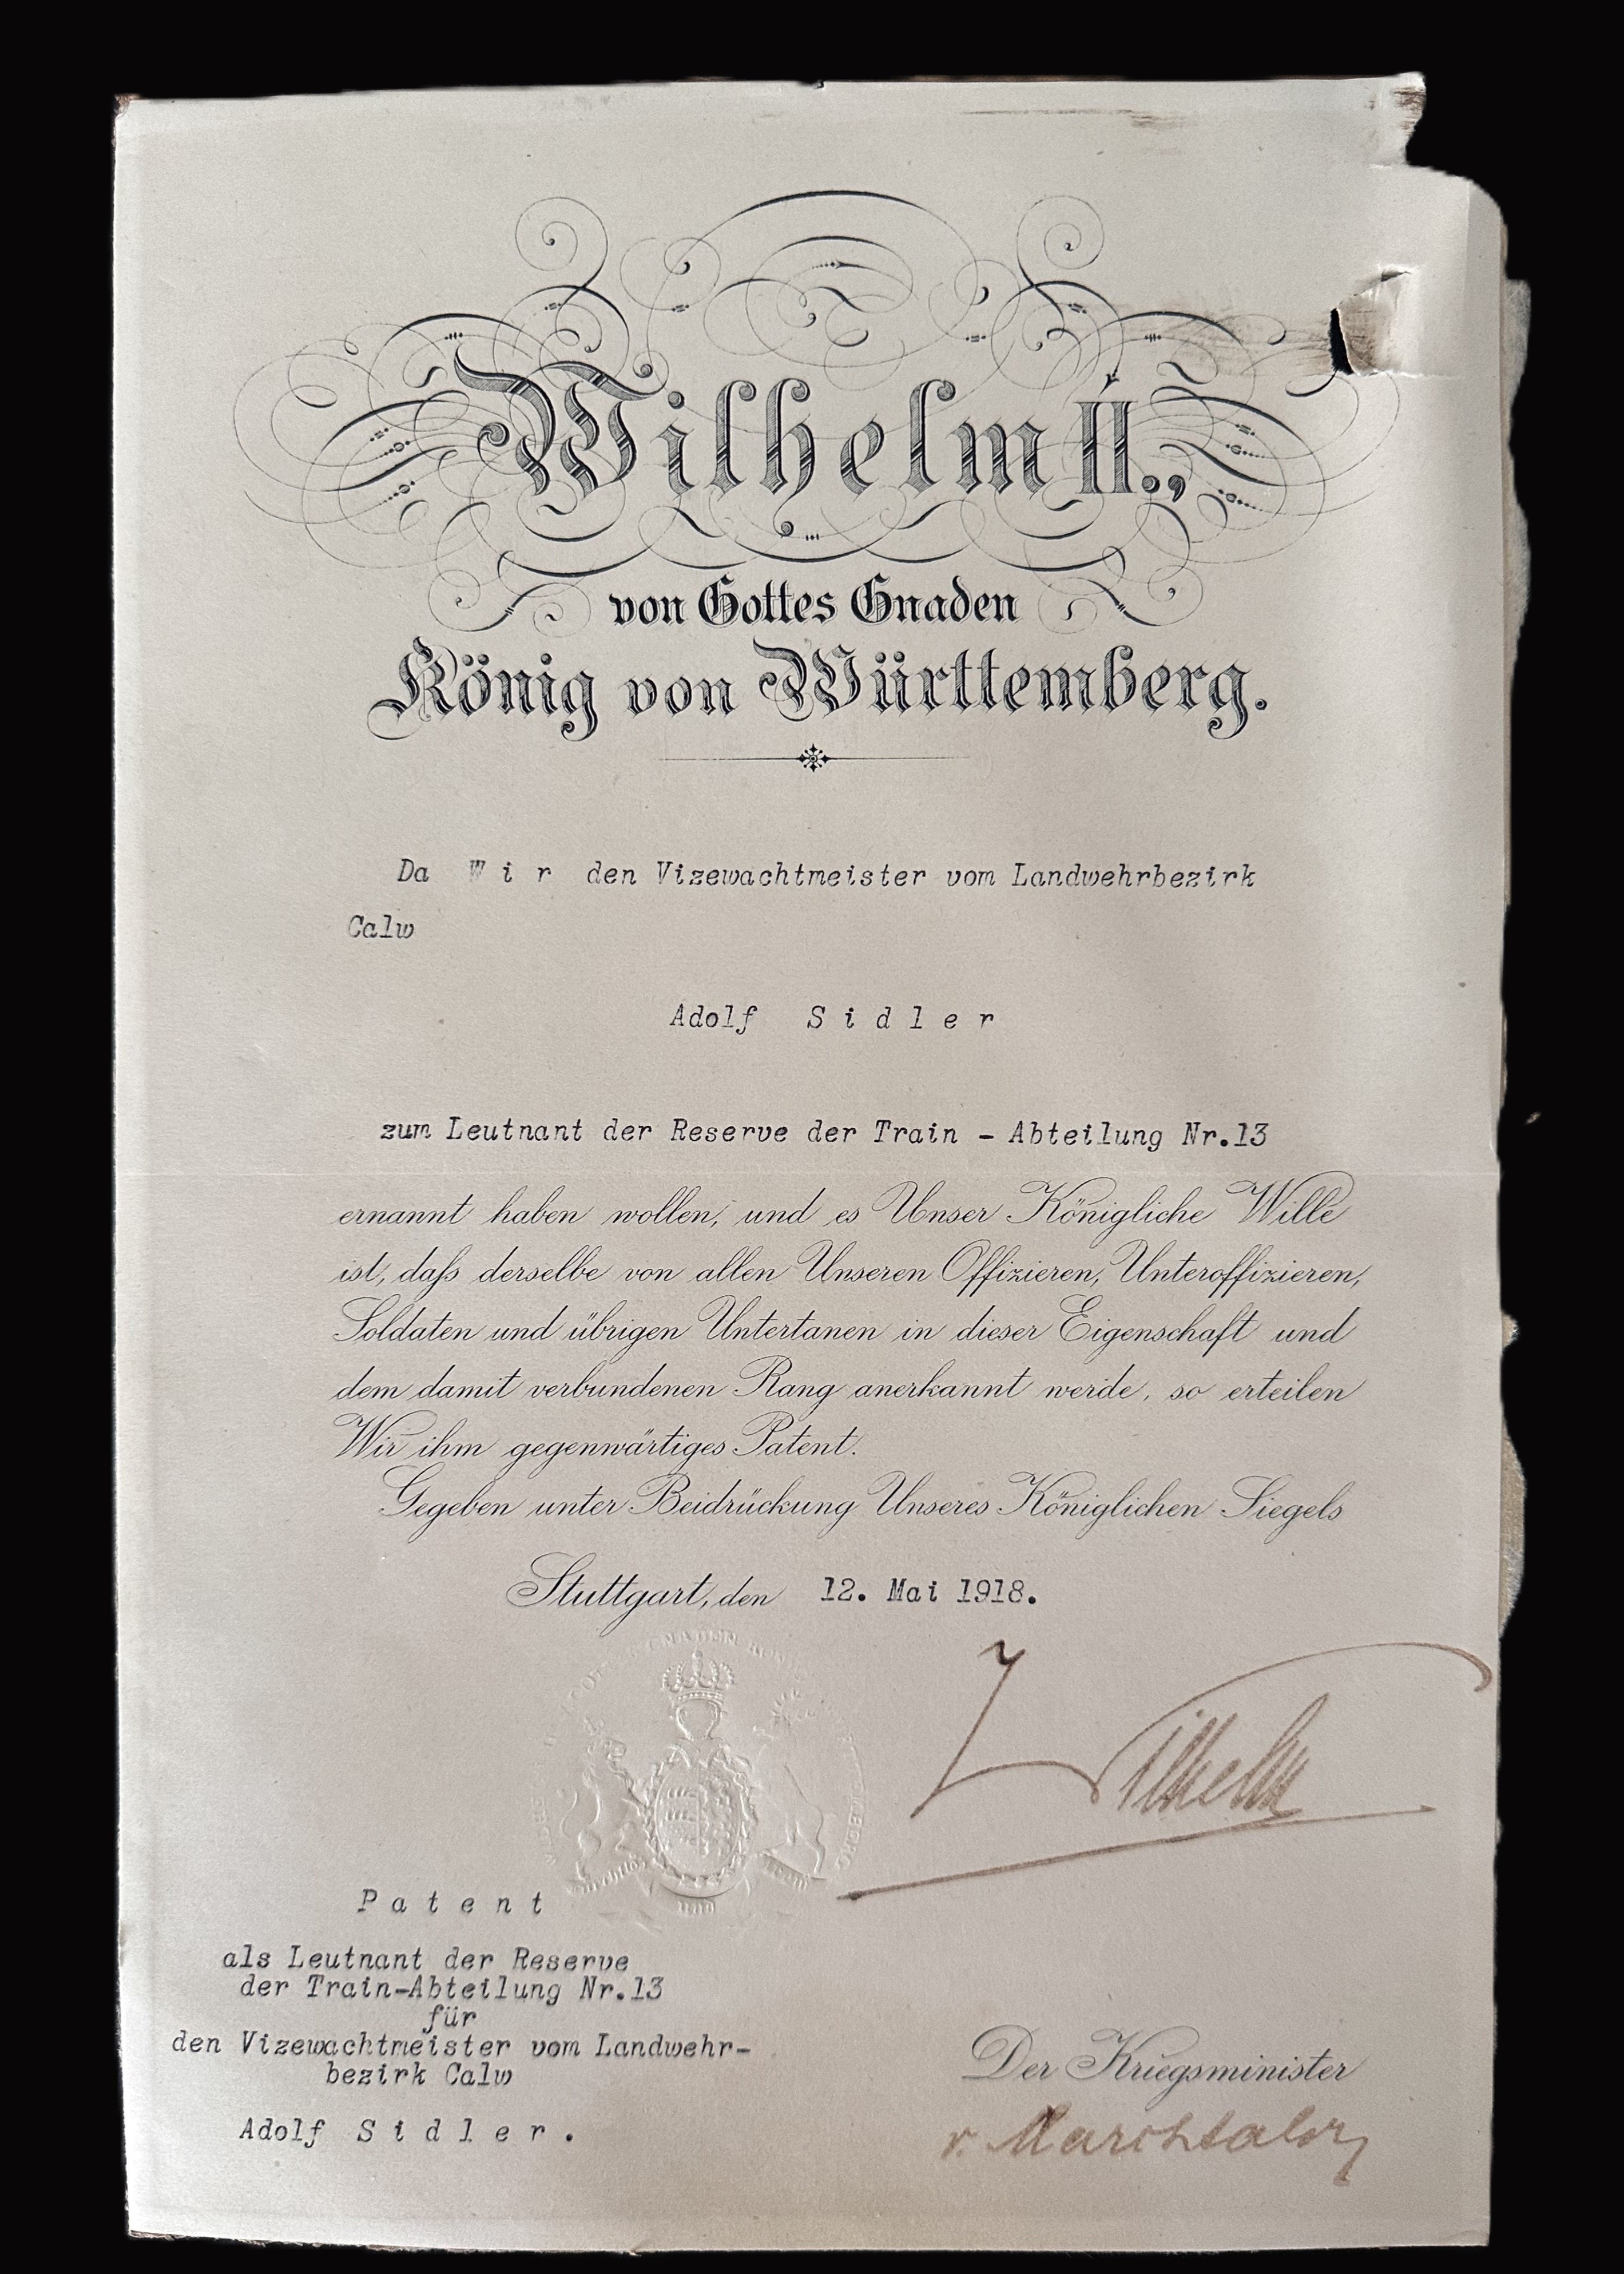 Wilhelm II.,
von Gottes Gnaden
König von Württemberg.
Da W i r den Vizewachtmeister vom Landwehrbezirk
Calw
Adolf S i d l e r
zum Leutnant der Reserve der Train - Abteilung Nr.13
ernannt haben wollen, und es Unser Königliche Wille
ist, daß derselbe von allen Unseren Offizieren, Unteroffizieren,
Soldaten und übrigen Untertanen in dieser Eigenschaft und
dem damit verbundenen Rang anerkannt werde, so erteilen
Wir ihm gegenwärtiges Patent.
Gegeben unter Beidrückung Unseres Königlichen Siegels
Stuttgart, den 12. Mai 1918.
Wilhelm
P a t e n t
als Leutnant der Reserve
der Train-Abteilung Nr.13
für
den Vizewachtmeister vom Landwehr-
bezirk Calw
Adolf S i d l e r .
Der Kriegsminister
v. Marchtaler